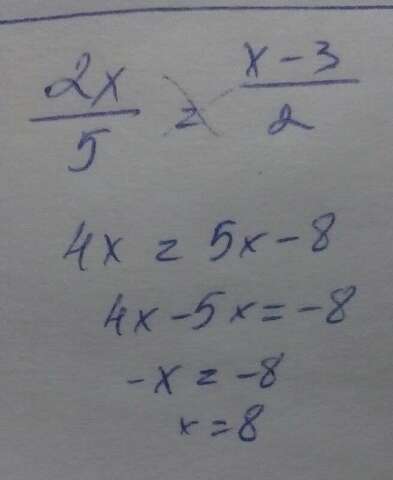 2x/5 = x-3/2
4x = 5x-8
4x-5x=-8
-x = -8
x=8